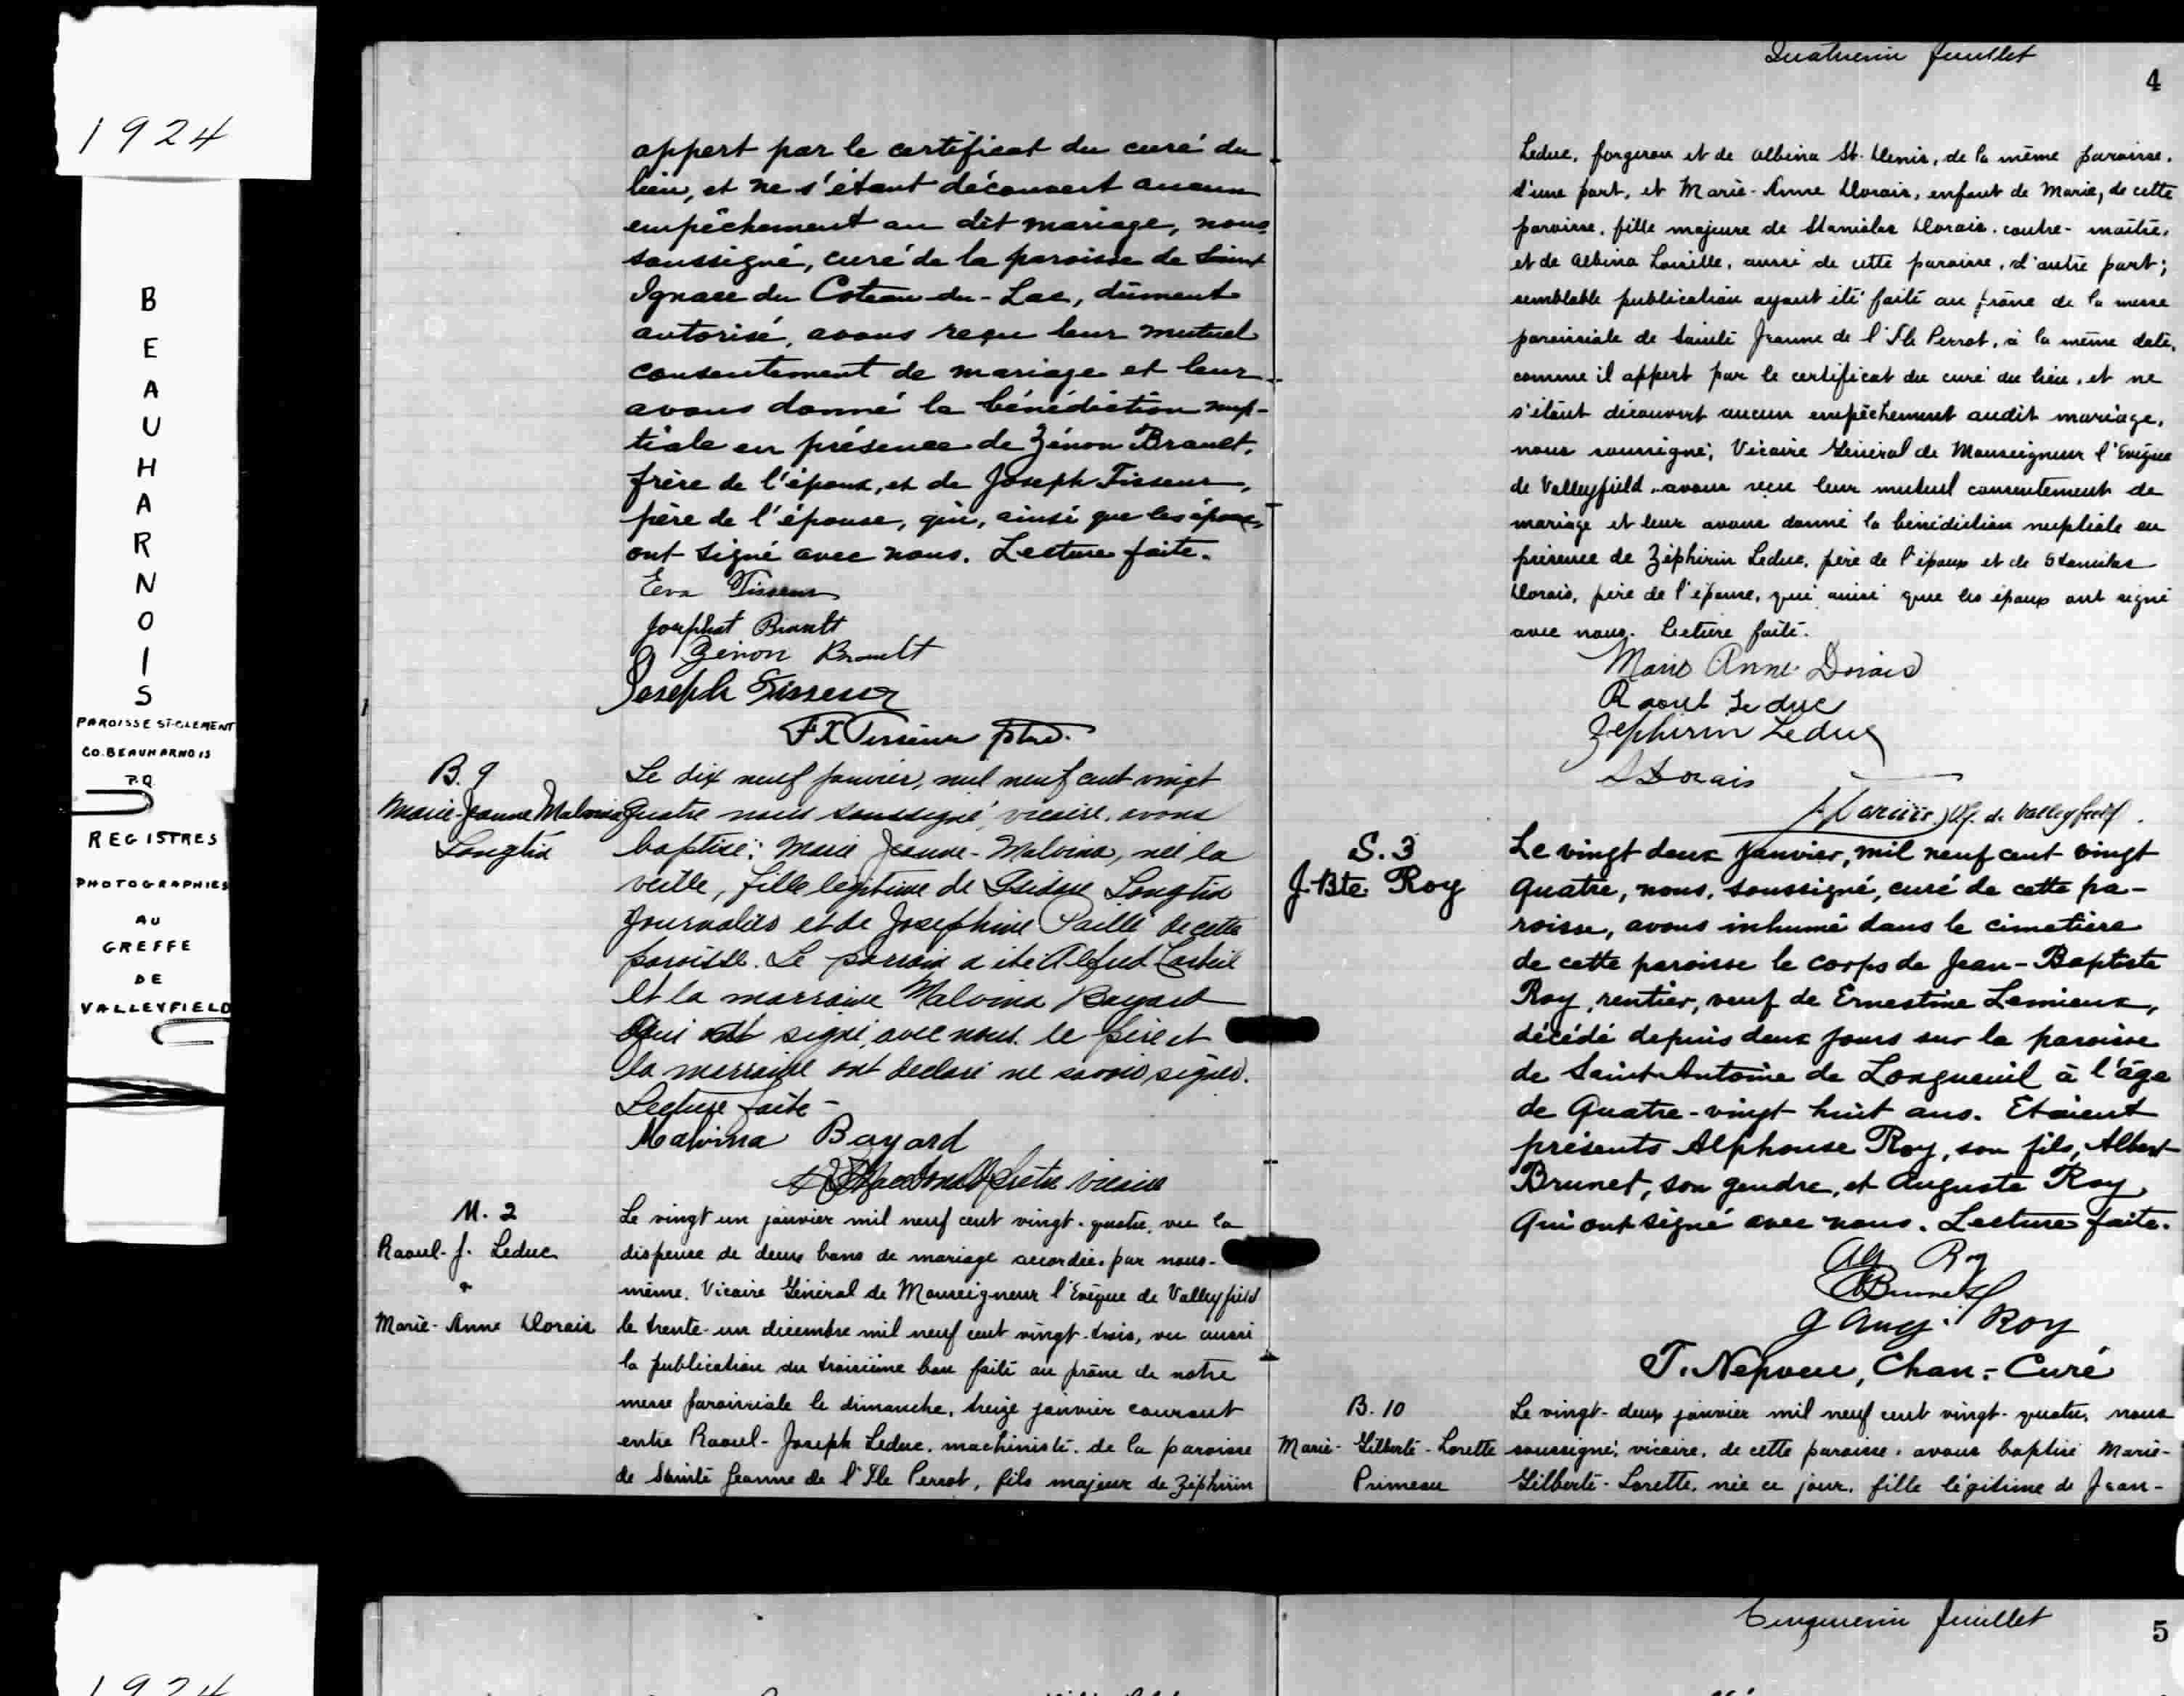 1924
BEAUHARNOIS
PAROISSE ST-CLEMENT
CO. BEAUHARNOIS
P.Q.
REGISTRES
PHOTOGRAPHIES
AU
GREFFE
DE
VALLEYFIELD
appert par le certificat du curé du
lieu, et ne s'étant découvert aucun
empêchement au dit mariage, nous,
soussigné, curé de la paroisse de Saint
Ignace du Coteau-du-Lac, dûment
autorisé, avons reçu leur mutuel
consentement de mariage et leur
avons donné la bénédiction nup-
tiale en présence de Zénon Brault,
frère de l'époux, et de Joseph Tisseur,
père de l'épouse, qui, ainsi que les époux,
ont signé avec nous. Lecture faite.
Eva Tisseur
Josphat Brault
Zénon Brault
Joseph Tisseur
F X Tisseur ptre.
B. 9
Marie-Jeanne Malvina
Longtin
Le dix neuf janvier, mil neuf cent vingt
quatre nous soussigné, vicaire, avons
baptisé: Marie Jeanne-Malvina, née la
veille, fille légitime de Longtin
Journalier et de Josephine Paille de cette
paroisse. Le parrain a été Alfred
et la marraine Malvina Bayard
qui ont signé, avec nous. le père et
la marraine ont declaré ne savoir signer.
Lecture faite -
Malvina Bayard
prêtre vicaire
M. 2
Raoul-J. Leduc
&
Marie-Anne Dorais
Le vingt un janvier mil neuf cent vingt-quatre, vu la
dispense de deux bans de mariage accordée, par nous-
même, Vicaire Général de Monseigneur l'Evêque de Valleyfield
le trente-un décembre mil neuf cent vingt-trois, vu aussi
la publication du troisième ban faite au prône de notre
messe paroissiale le dimanche, treize janvier courant
entre Raoul-Joseph Leduc, machiniste, de la paroisse
de Sainte Jeanne de l'Ile Perrot, fils majeur de Zéphirin
Quatrième feuillet
4
Leduc, forgeron et de Albina St. Denis, de la même paroisse,
d'une part, et Marie-Anne Dorais, enfant de Marie, de cette
paroisse, fille majeure de Stanislas Dorais, contre-maître,
et de Albina Loiselle, aussi de cette paroisse, d'autre part;
semblable publication ayant été faite au prône de la messe
paroissiale de Sainte Jeanne de l'Ile Perrot, à la même date,
comme il appert par le certificat du curé du lieu, et ne
s'étant découvert aucun empêchement audit mariage,
nous soussigné, Vicaire Général de Monseigneur l'Evêque
de Valleyfield, avons reçu leur mutuel consentement de
mariage et leur avons donné la bénédiction nuptiale en
présence de Zéphirin Leduc, père de l'époux et de Stanislas
Dorais, père de l'épouse, qui ainsi que les époux ont signé
avec nous. Lecture faite.
Marie Anne Dorais
Raoul Leduc
Zephirin Leduc
S Dorais
de Valleyfield.
S. 3
J. Bte. Roy
Le vingt deux janvier, mil neuf cent vingt
quatre, nous, soussigné, curé de cette pa-
roisse, avons inhumé dans le cimetière
de cette paroisse le corps de Jean-Baptiste
Roy, rentier, veuf de Ernestine Lemieux,
décédé depuis deux jours sur la paroisse
de Saint-Antoine de Longueuil à l'âge
de Quatre-vingt huit ans. Etaient
présents Alphonse Roy, son fils, Albert
Brunet, son gendre, et Auguste Roy,
qui ont signé avec nous. Lecture faite.
Roy
A Brunet
J Aug. Roy
T. Nepveu, Chan.-Curé
B. 10
Marie-Gilberte-Lorette
Primeau
Le vingt-deux janvier mil neuf cent vingt-quatre, nous
soussigné, vicaire, de cette paroisse, avons baptisé Marie-
Gilberte-Lorette, née ce jour, fille légitime de Jean-
1924
Cinquième feuillet
5